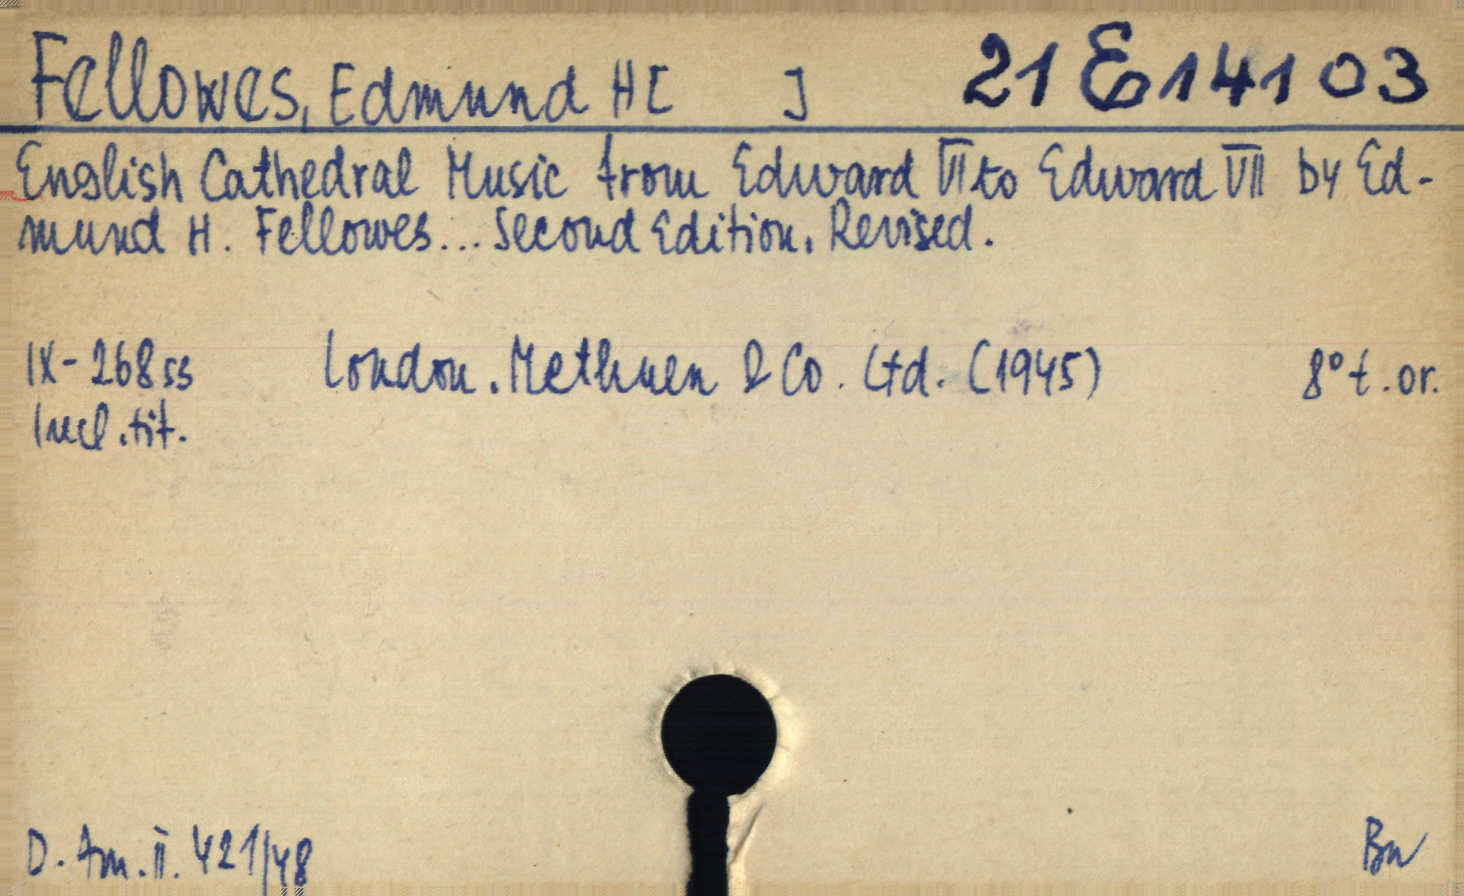 Fellowes, Edmund H[ ] 21 E 141 03
English Cathedral Music from Edward VI to Edward VII by Ed-
mund H. Fellowes... Second Edition. Revised.
IX-268 ss London. Methuen & Co. Ltd. (1945) 8° t. or.
Incl. tit.
D. Am. II. 421/48 Bn